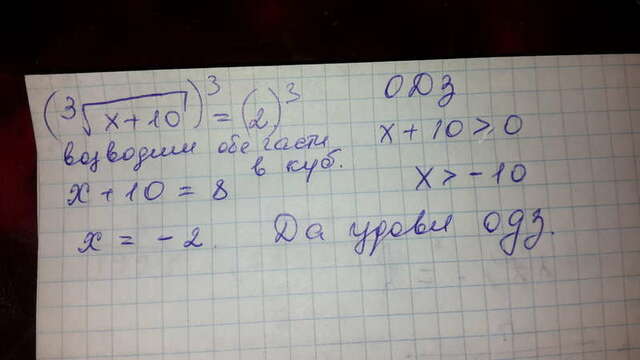 (∛(x+10))³ = (2)³
возводим обе части
в куб.
x + 10 = 8
x = -2.
ОДЗ
x + 10 ≥ 0
x > -10
Да удовл ОДЗ.